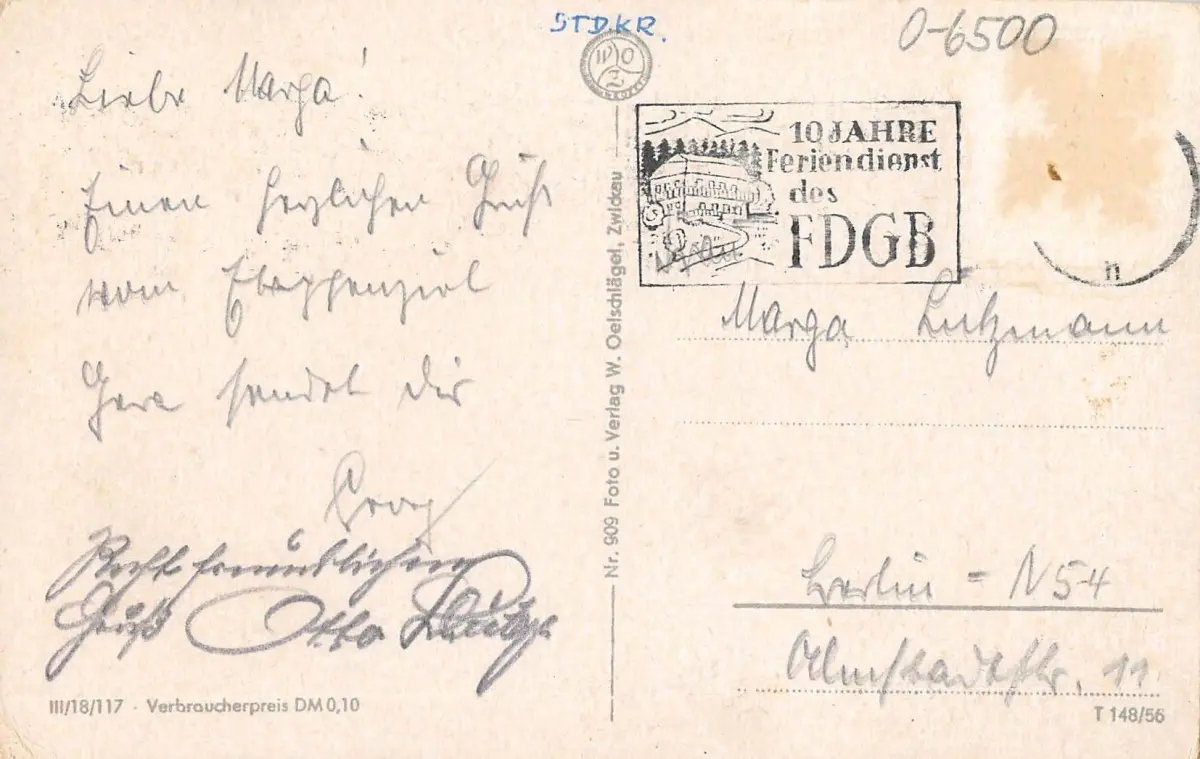 STDKR.
0-6500
W O Z
Liebe Marga!
Einen herzlichen Gruß
vom Etappenziel
Gera sendet dir
Georg
Recht freundlichen
Gruß Otto
III/18/117 · Verbraucherpreis DM 0,10
Nr. 909 Foto u. Verlag W. Oelschlägel, Zwickau
10 JAHRE
Feriendienst
des
FDGB
n
Frau
Marga Lützmann
Berlin - N 54
Almstadtstr. 11
T 148/56